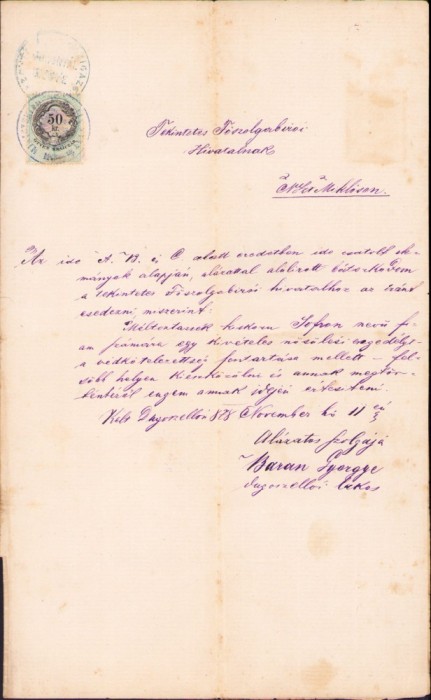 50
Tekintetes Főszolgabirói
Hivatalnak
N Szt Miklóson.
Az ide A. B. és C alatt eredetben ide csatolt ok-
mányok alapján, alázattal alólirott bátorkodom
a tekintetes Főszolgabirói hivatalhoz az iránt
esedezni, miszerint:
Méltóztassék kiskoru Sofron nevü fi-
am számára egy kivételes nősülési engedélyt
a védkötelezettség fentartása mellett – fel-
sőbb helyen kieszközölni és annak megtör-
téntéről engem annak idején értesiteni.
Kelt November hó 11 én
Alázatos szolgája
Baran Györgye
lakos